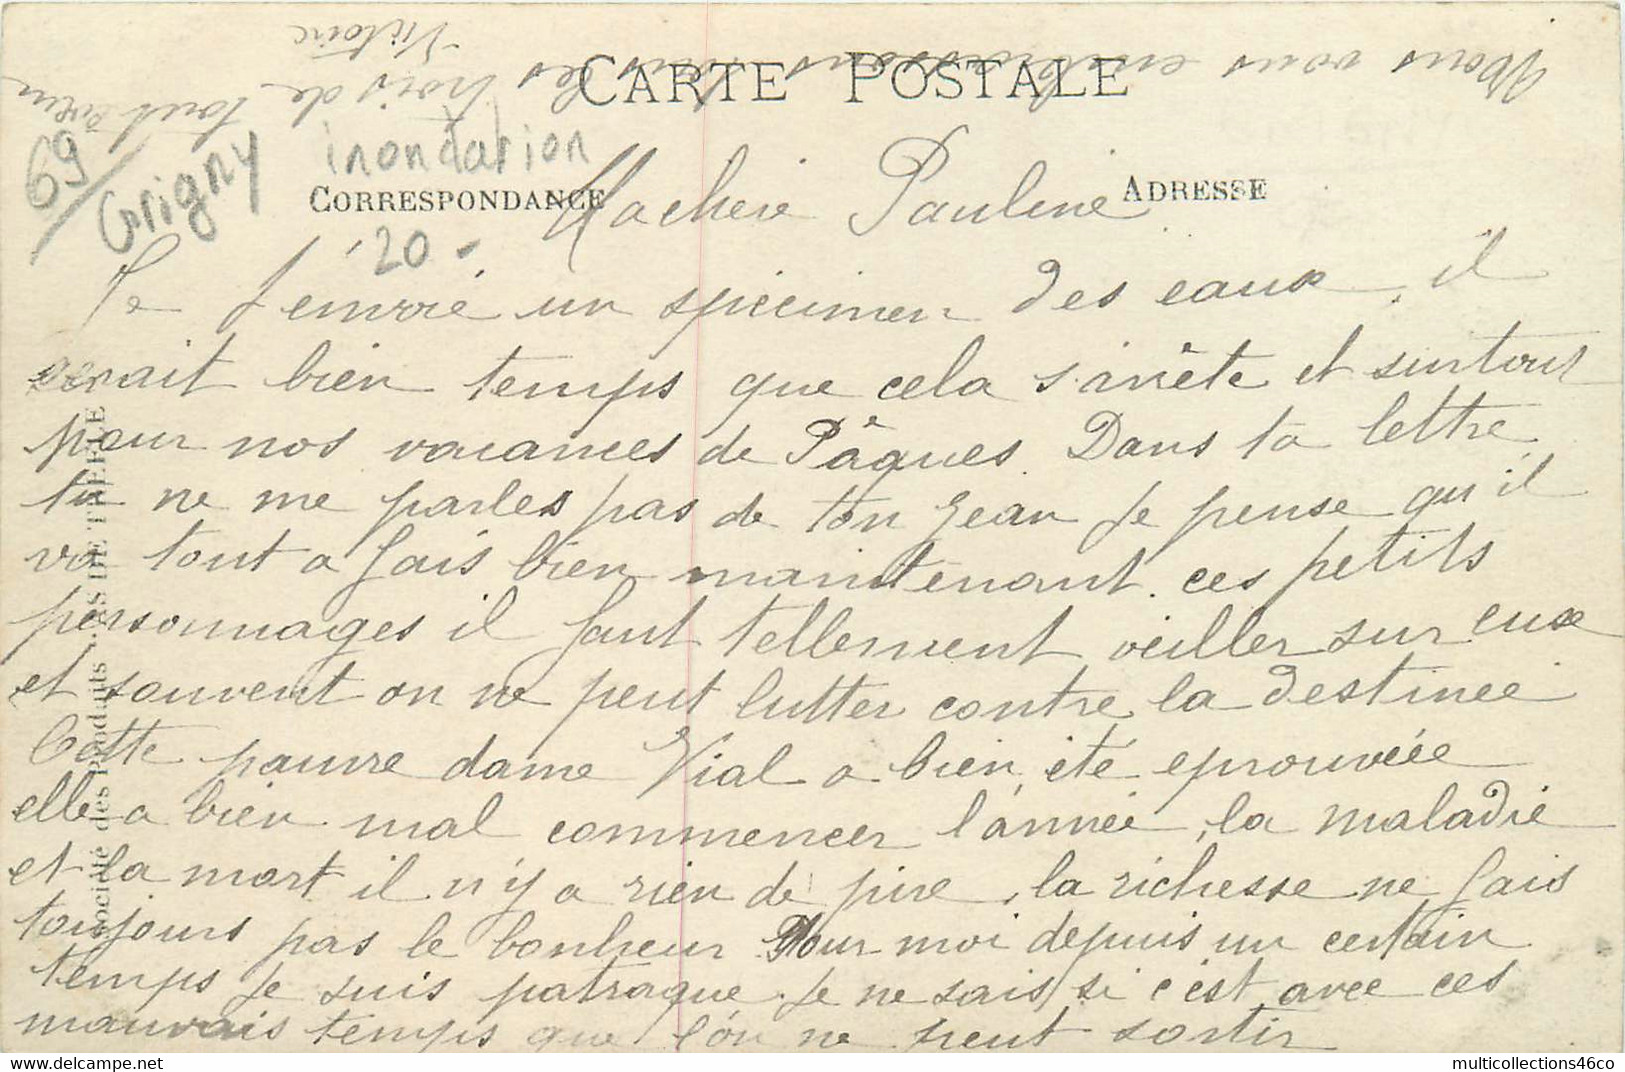 Nous vous embrassons tous les trois de tout cœur
Victoire
CARTE POSTALE
69/ Grigny
inondation
20 -
CORRESPONDANCE
ADRESSE
Ma chère Pauline
Je t'envoie un spécimen des eaux, il
serait bien temps que cela s'arrête et surtout
pour nos vacances de Pâques. Dans ta lettre
tu ne me parles pas de ton Jean je pense qu'il
va tout a fais bien maintenant. ces petits
personnages il faut tellement veiller sur eux
et souvent on ne peut lutter contre la destinée
Cette pauvre dame Vial a bien été eprouvéee
elle a bien mal commencer l'année, la maladie
et la mort il n'y a rien de pire, la richesse ne fais
toujours pas le bonheur. Pour moi depuis un certain
temps je suis patraque. Je ne sais si c'est avec ces
mauvais temps que l'on ne peut sortir
Société des Produits
AS DE TRÈFLE
multicollections46co